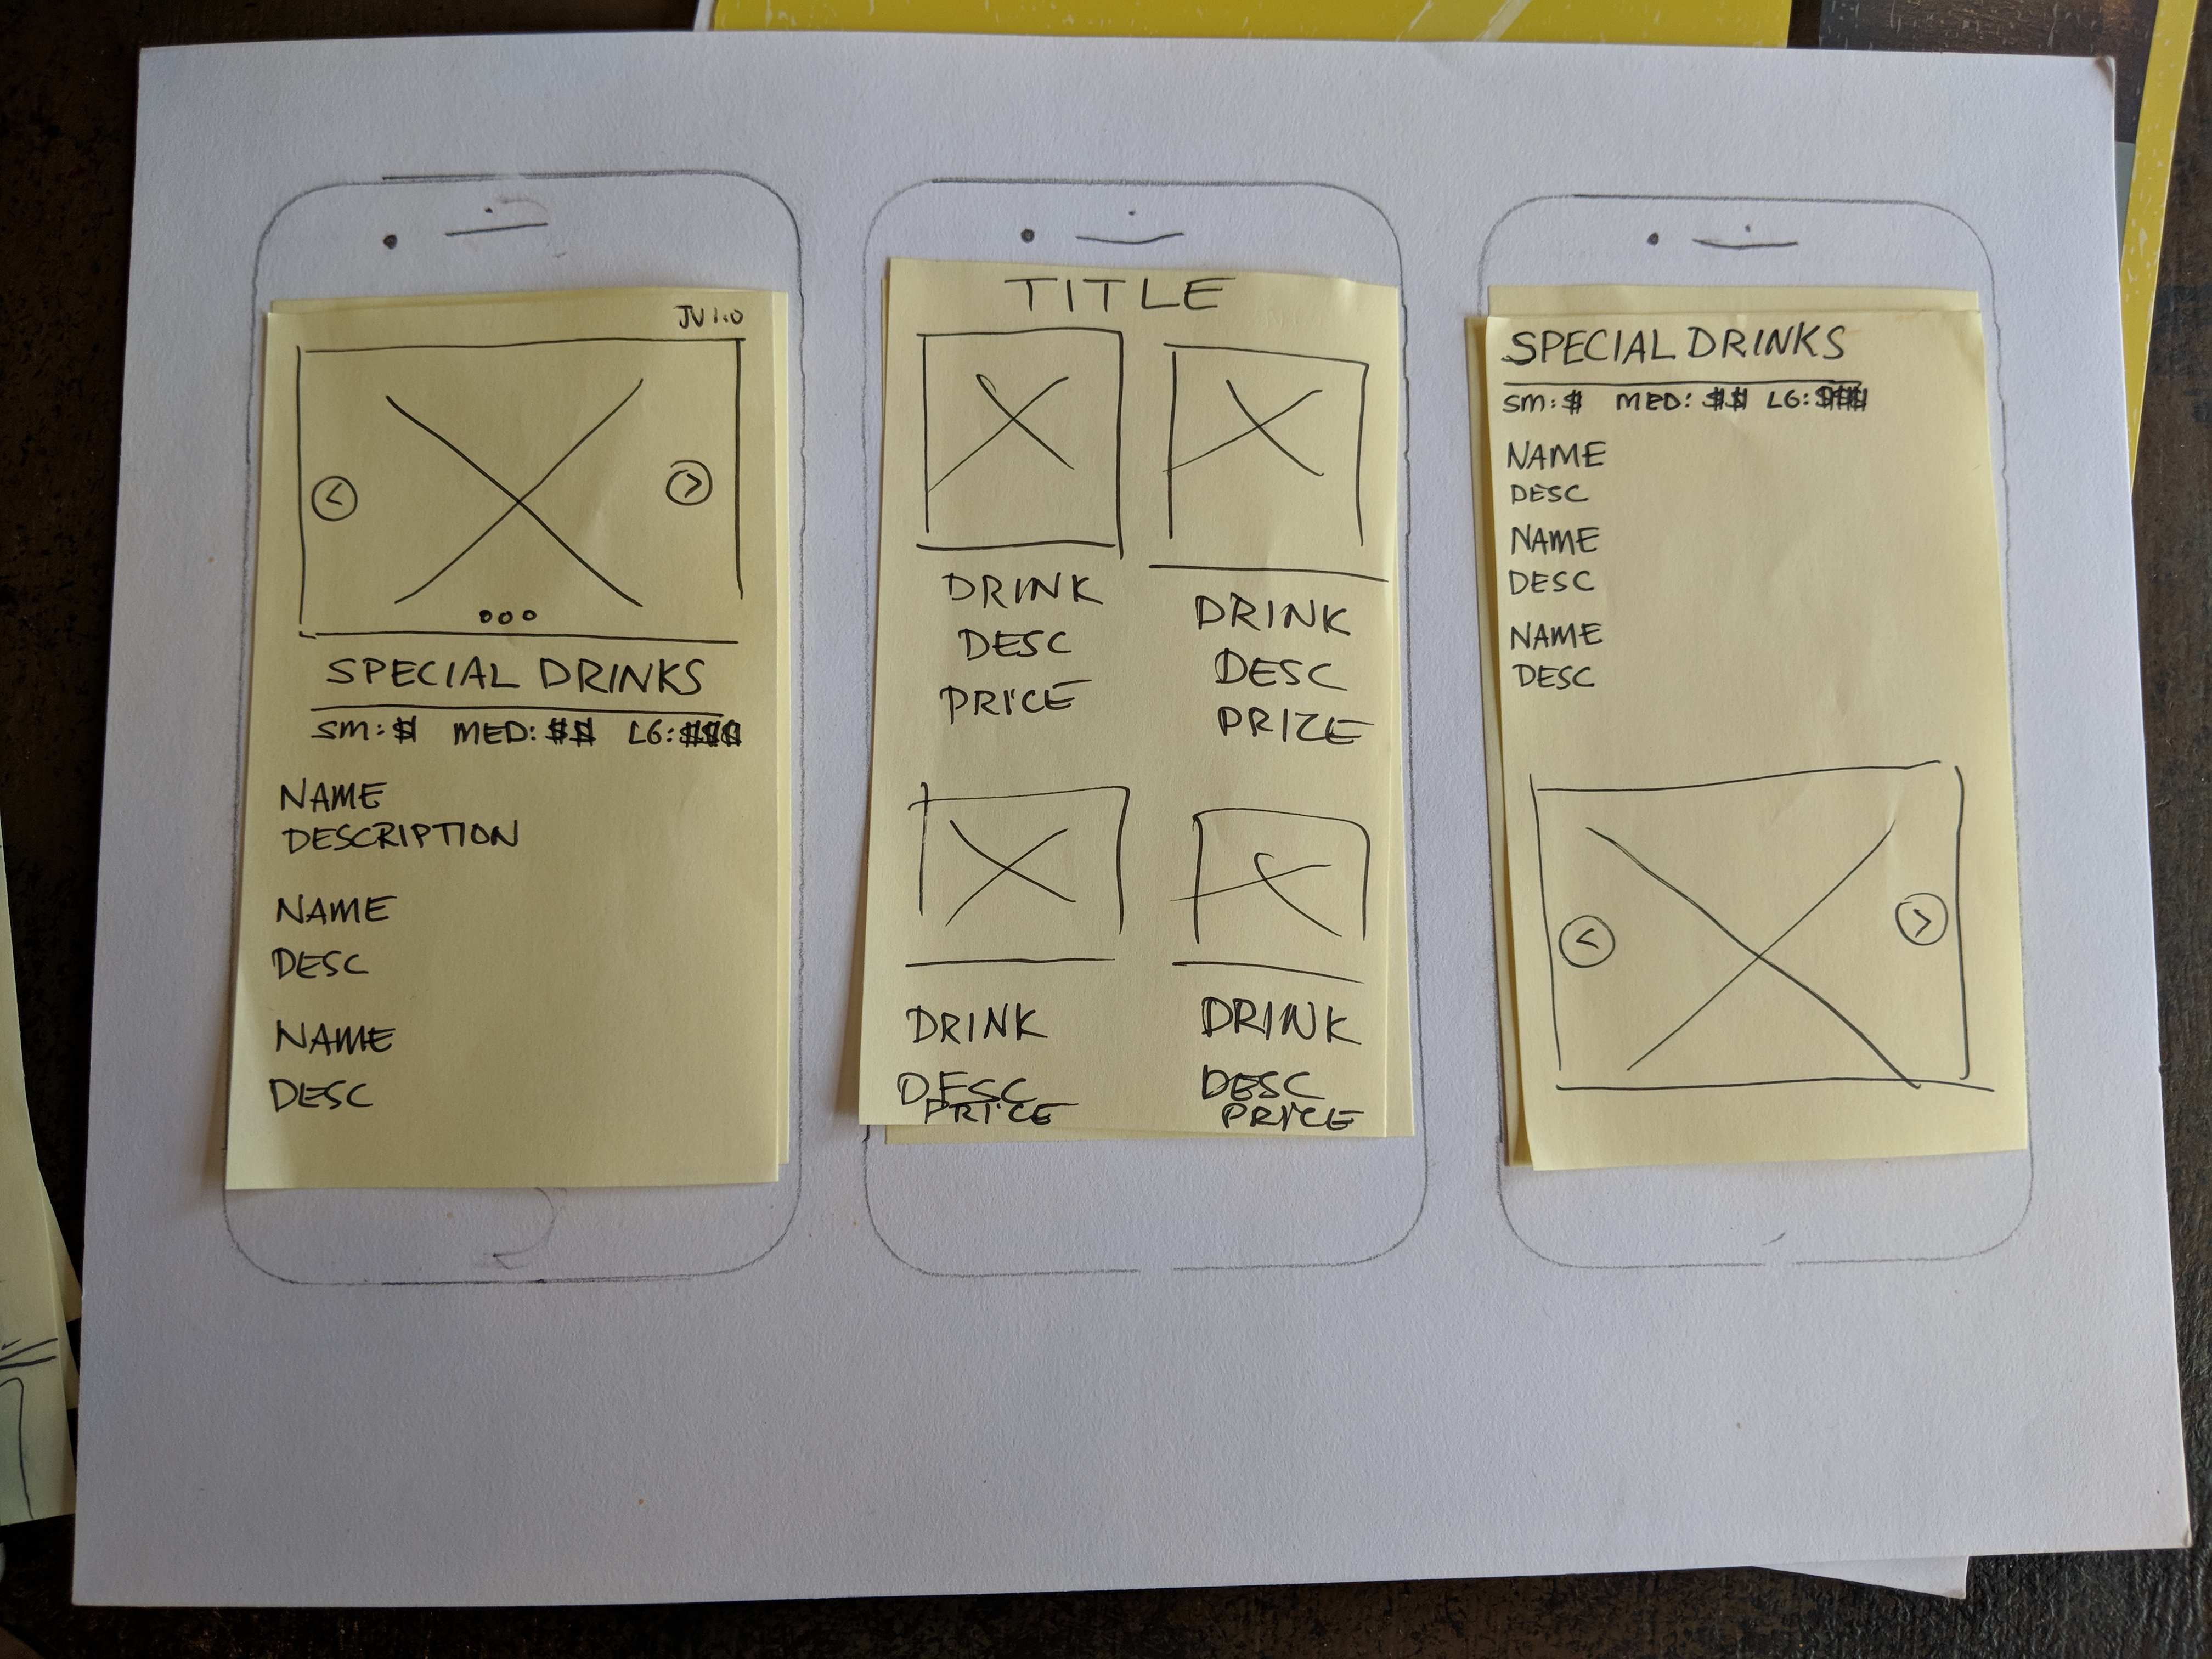 JV 1.0
<
>
SPECIAL DRINKS
SM: $ MED: $$ LG: $$$
NAME
DESCRIPTION
NAME
DESC
NAME
DESC
TITLE
DRINK
DESC
PRICE
DRINK
DESC
PRIZE
DRINK
DESC
PRICE
DRINK
DESC
PRICE
SPECIAL DRINKS
SM: $ MED: $$ LG: $$$
NAME
DESC
NAME
DESC
NAME
DESC
<
>